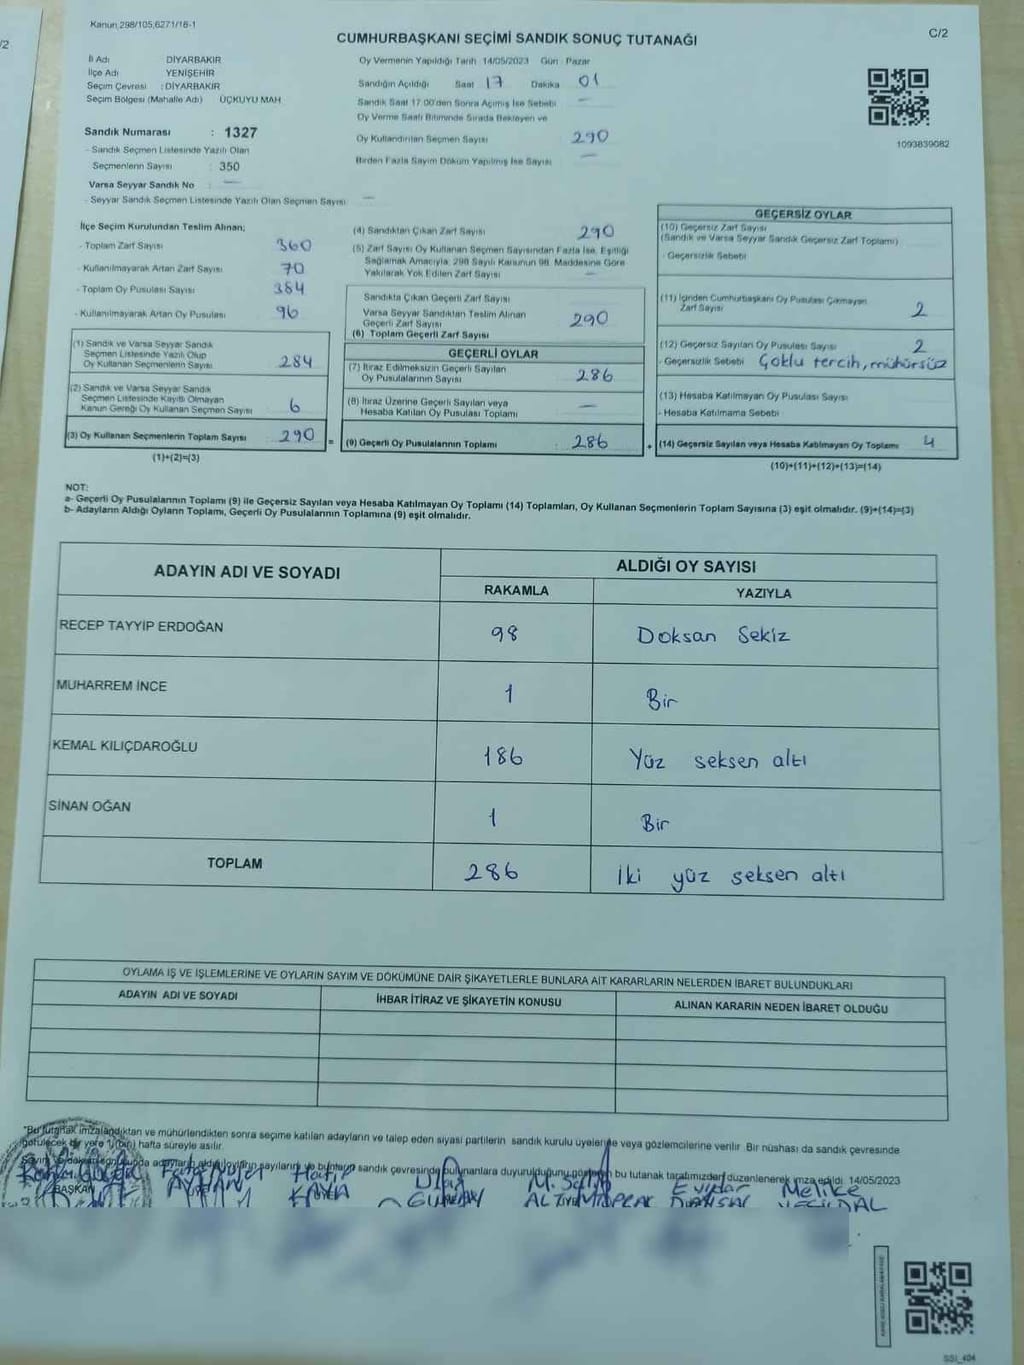 Kanun 298/105,6271/16-1
C/2
CUMHURBAŞKANI SEÇİMİ SANDIK SONUÇ TUTANAĞI
İl Adı DİYARBAKIR
İlçe Adı YENİŞEHİR
Seçim Çevresi : DİYARBAKIR
Seçim Bölgesi (Mahalle Adı) ÜÇKUYU MAH
Sandık Numarası : 1327
- Sandık Seçmen Listesinde Yazılı Olan
Seçmenlerin Sayısı : 350
Varsa Seyyar Sandık No : —
- Seyyar Sandık Seçmen Listesinde Yazılı Olan Seçmen Sayısı —
Oy Vermenin Yapıldığı Tarih 14/05/2023 Gün Pazar
Sandığın Açıldığı Saat 17 Dakika 01
Sandık Saat 17.00'den Sonra Açılmış İse Sebebi —
Oy Verme Saati Bitiminde Sırada Bekleyen ve
Oy Kullandırılan Seçmen Sayısı 290
Birden Fazla Sayım Döküm Yapılmış İse Sayısı —
1093839082
İlçe Seçim Kurulundan Teslim Alınan;
- Toplam Zarf Sayısı 360
- Kullanılmayarak Artan Zarf Sayısı 70
- Toplam Oy Pusulası Sayısı 384
- Kullanılmayarak Artan Oy Pusulası 96
(1) Sandık ve Varsa Seyyar Sandık
Seçmen Listesinde Yazılı Olup
Oy Kullanan Seçmenlerin Sayısı 284
(2) Sandık ve Varsa Seyyar Sandık
Seçmen Listesinde Kayıtlı Olmayan
Kanun Gereği Oy Kullanan Seçmen Sayısı 6
(3) Oy Kullanan Seçmenlerin Toplam Sayısı 290
(1)+(2)=(3)
(4) Sandıktan Çıkan Zarf Sayısı 290
(5) Zarf Sayısı Oy Kullanan Seçmen Sayısından Fazla İse, Eşitliği
Sağlamak Amacıyla, 298 Sayılı Kanunun 98. Maddesine Göre
Yakılarak Yok Edilen Zarf Sayısı —
Sandıkta Çıkan Geçerli Zarf Sayısı
Varsa Seyyar Sandıktan Teslim Alınan
Geçerli Zarf Sayısı
(6) Toplam Geçerli Zarf Sayısı 290
GEÇERLİ OYLAR
(7) İtiraz Edilmeksizin Geçerli Sayılan
Oy Pusulalarının Sayısı 286
(8) İtiraz Üzerine Geçerli Sayılan veya
Hesaba Katılan Oy Pusulası Toplamı —
= (9) Geçerli Oy Pusulalarının Toplamı 286
GEÇERSİZ OYLAR
(10) Geçersiz Zarf Sayısı
(Sandık ve Varsa Seyyar Sandık Geçersiz Zarf Toplamı)
- Geçersizlik Sebebi
(11) İçinden Cumhurbaşkanı Oy Pusulası Çıkmayan
Zarf Sayısı 2
(12) Geçersiz Sayılan Oy Pusulası Sayısı 2
- Geçersizlik Sebebi Çoklu tercih, mühürsüz
(13) Hesaba Katılmayan Oy Pusulası Sayısı
- Hesaba Katılmama Sebebi
+ (14) Geçersiz Sayılan veya Hesaba Katılmayan Oy Toplamı 4
(10)+(11)+(12)+(13)=(14)
NOT:
a- Geçerli Oy Pusulalarının Toplamı (9) ile Geçersiz Sayılan veya Hesaba Katılmayan Oy Toplamı (14) Toplamları, Oy Kullanan Seçmenlerin Toplam Sayısına (3) eşit olmalıdır. (9)+(14)=(3)
b- Adayların Aldığı Oyların Toplamı, Geçerli Oy Pusulalarının Toplamına (9) eşit olmalıdır.
ADAYIN ADI VE SOYADI ALDIĞI OY SAYISI
RAKAMLA YAZIYLA
RECEP TAYYİP ERDOĞAN 98 Doksan Sekiz
MUHARREM İNCE 1 Bir
KEMAL KILIÇDAROĞLU 186 Yüz seksen altı
SİNAN OĞAN 1 Bir
TOPLAM 286 İki yüz seksen altı
OYLAMA İŞ VE İŞLEMLERİNE VE OYLARIN SAYIM VE DÖKÜMÜNE DAİR ŞİKAYETLERLE BUNLARA AİT KARARLARIN NELERDEN İBARET BULUNDUKLARI
ADAYIN ADI VE SOYADI İHBAR İTİRAZ VE ŞİKAYETİN KONUSU ALINAN KARARIN NEDEN İBARET OLDUĞU
"Bu tutanak imzalandıktan ve mühürlendikten sonra seçime katılan adayların ve talep eden siyasi partilerin sandık kurulu üyelerine veya gözlemcilerine verilir. Bir nüshası da sandık çevresinde
görülecek bir yere 1 (bir) hafta süreyle asılır.
sandık çevresinde bulunanlara duyurulduğunu gösteren bu tutanak tarafımızdan düzenlenerek imza edildi. 14/05/2023
BAŞKAN
Hatip KAYA
Melike